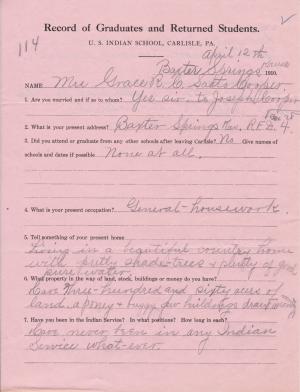 114
Record of Graduates and Returned Students.
U. S. INDIAN SCHOOL, CARLISLE, PA.
April 12th
Baxter Springs Kansas 1910.
NAME Mrs Grace R. C. Setts Cooper.
1. Are you married and if so to whom? Yes sir. to Joseph Cooper
2. What is your present address? Baxter Springs Kan, R.F.D. 4.
Box 38
3. Did you attend or graduate from any other schools after leaving Carlisle? No Give names of
schools and dates if possible None at all.
4. What is your present occupation? General-housework
5. Tell something of your present home
Living in a beautiful country home
with pretty shade-trees & plenty of good
pure water.
6. What property in the way of land, stock, buildings or money do you have?
Have three-hundred and sixty acres of
land. a poney & buggy few buildings drawt
7. Have you been in the Indian Service? In what positions? How long in each?
Have never been in any Indian
Service what-ever.